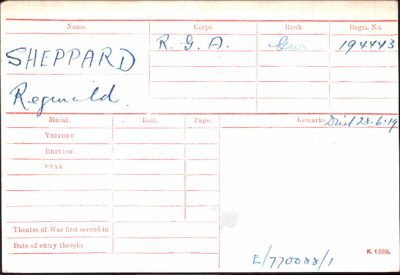 Name. Corps. Rank. Regtl. No.
SHEPPARD R. G. A. Gnr. 194443
Reginald.
Medal. Roll. Page. Remarks. Died 28.6.19
VICTORY
BRITISH
STAR
Theatre of War first served in
Date of entry therein
E/770088/1
K. 1380.